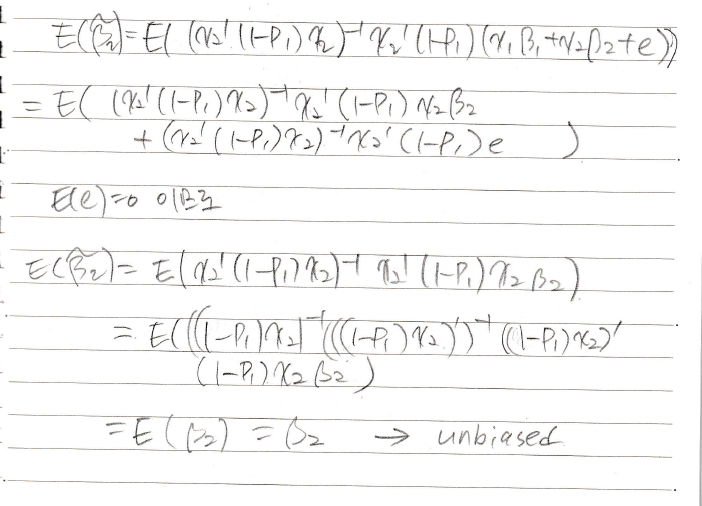 E(β̃₂) = E( (x₂'(1-P₁)x₂)⁻¹ x₂'(1-P₁)(x₁β₁+x₂β₂+e))
= E( (x₂'(1-P₁)x₂)⁻¹ x₂'(1-P₁)x₂β₂
+ (x₂'(1-P₁)x₂)⁻¹x₂'(1-P₁)e )
E(e)=0 이므로
E(β̃₂) = E(x₂'(1-P₁)x₂)⁻¹ x₂'(1-P₁)x₂β₂)
= E(((1-P₁)x₂)⁻¹(((1-P₁)x₂)')⁻¹ ((1-P₁)x₂)'
(1-P₁)x₂β₂)
= E(β₂) = β₂ → unbiased